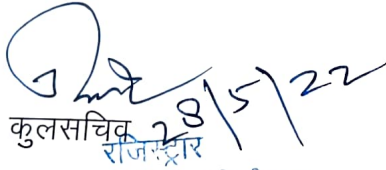 28/5/22
कुलसचिव
रजिस्ट्रार